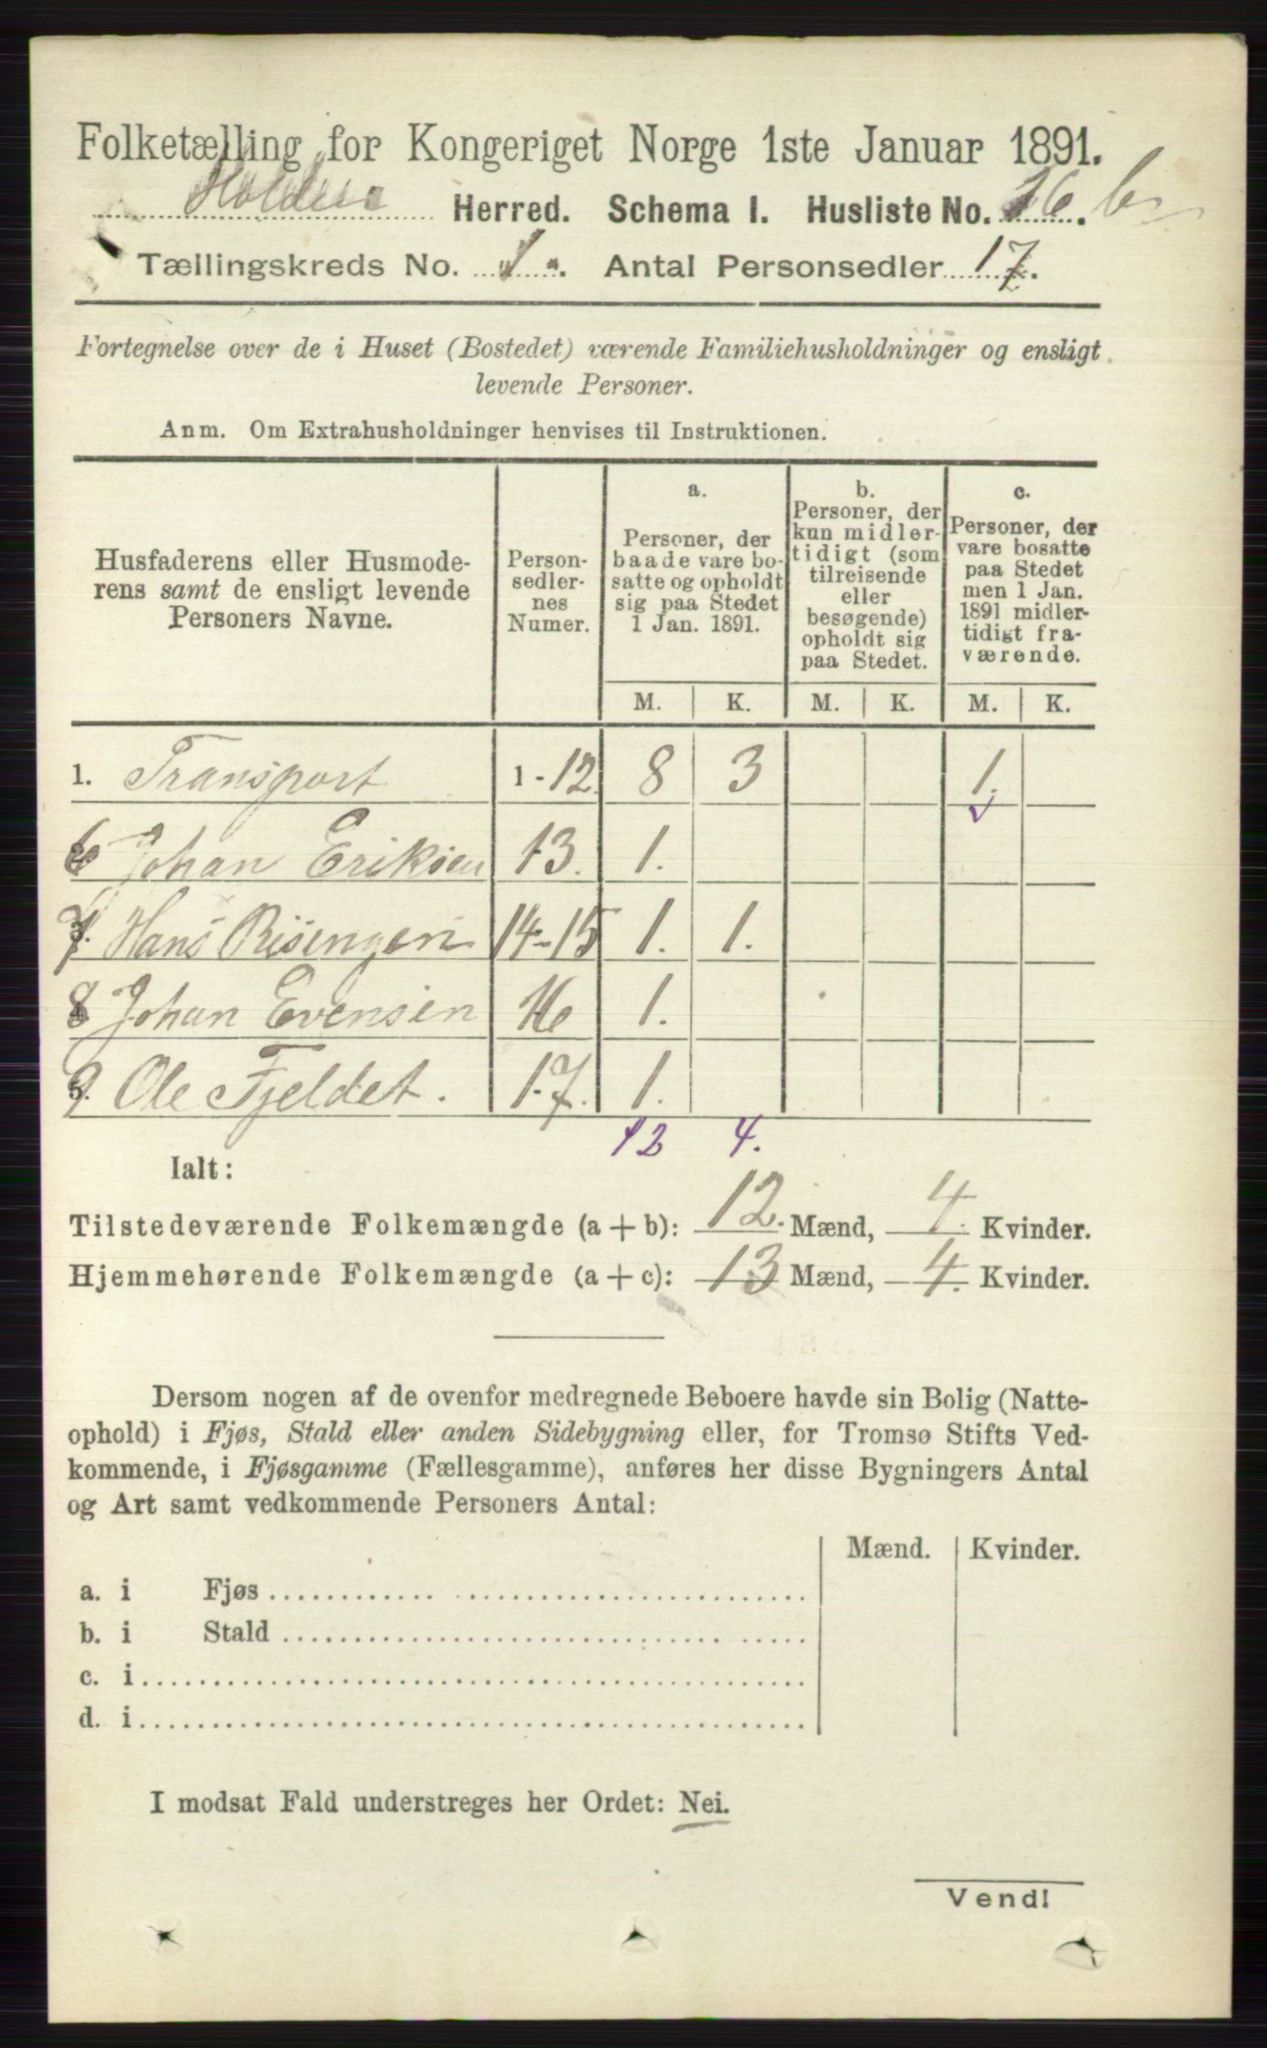 Folketælling for Kongeriget Norge 1ste Januar 1891.
Holden Herred. Schema I. Husliste No. 16 b
Tællingskreds No. 1. Antal Personsedler 17.
Fortegnelse over de i Huset (Bostedet) værende Familiehusholdninger og ensligt
levende Personer.
Anm. Om Extrahusholdninger henvises til Instruktionen.
Husfaderens eller Husmoderens samt de ensligt levende Personers Navne.
Personsedlernes Numer.
a.
Personer, der baade vare bosatte og opholdt sig paa Stedet 1 Jan. 1891.
b.
Personer, der kun midlertidigt (som tilreisende eller besøgende) opholdt sig paa Stedet.
c.
Personer, der vare bosatte paa Stedet men 1 Jan. 1891 midlertidigt fraværende.
M. K. M. K. M. K.
1. Transport 1-12 8 3 1.
6 Johan Eriksen 13. 1.
7. Hans Risengen 14-15 1. 1.
8 Johan Evensen 16 1.
9 Ole Fjeldet. 17. 1.
12 4.
Ialt:
Tilstedeværende Folkemængde (a + b): 12. Mænd, 4. Kvinder.
Hjemmehørende Folkemængde (a + c): 13 Mænd, 4. Kvinder.
Dersom nogen af de ovenfor medregnede Beboere havde sin Bolig (Natte-
ophold) i Fjøs, Stald eller anden Sidebygning eller, for Tromsø Stifts Ved-
kommende, i Fjøsgamme (Fællesgamme), anføres her disse Bygningers Antal
og Art samt vedkommende Personers Antal:
Mænd. Kvinder.
a. i Fjøs
b. i Stald
c. i
d. i
I modsat Fald understreges her Ordet: Nei.
Vend!